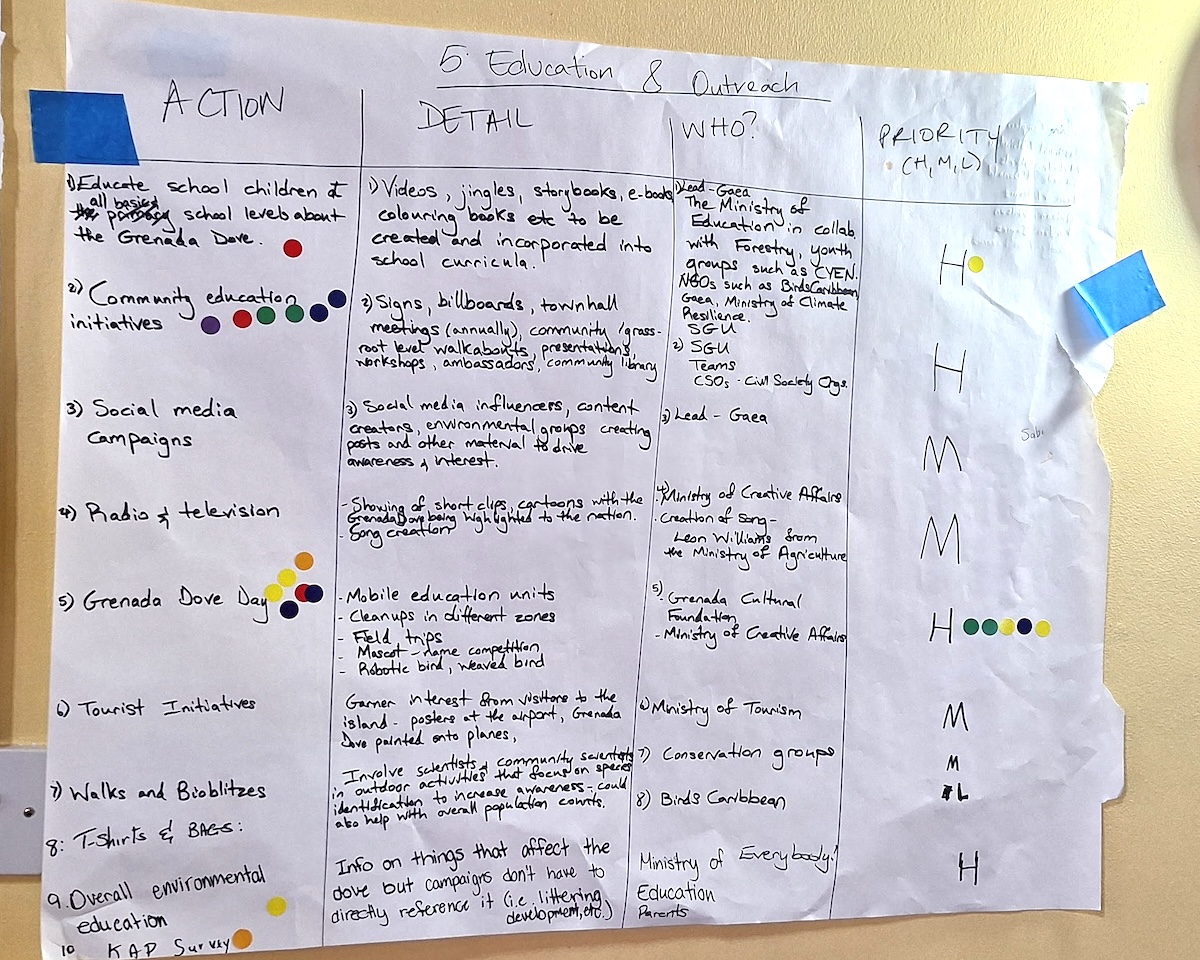 5. Education & Outreach
ACTION
DETAIL
WHO?
PRIORITY
(H, M, L)
1) Educate school children at
all basic
school levels about
the Grenada Dove.
1) Videos, jingles, storybooks, e-books
colouring books etc to be
created and incorporated into
school curricula.
1) Lead - Gaea
The Ministry of
Education in collab.
with Forestry, youth
groups such as CYEN.
NGOs such as BirdsCaribbean
Gaea, Ministry of Climate
Resilience.
SGU
H
2) Community education
initiatives
2) Signs, billboards, townhall
meetings (annually), community/grass-
root level walkabouts, presentations,
workshops, ambassadors, community library
2) SGU
Teams
CSOs - Civil Society Orgs.
H
3) Social media
campaigns
3) Social media influencers, content
creators, environmental groups creating
posts and other material to drive
awareness & interest.
3) Lead - Gaea
M
4) Radio & television
- Showing of short clips, cartoons with the
Grenada Dove being highlighted to the nation.
- Song creation
4) Ministry of Creative Affairs
- Creation of Song -
Leon Williams from
the Ministry of Agriculture
M
5) Grenada Dove Day
- Mobile education units
- Cleanups in different zones
- Field trips
- Mascot - name competition
- Robotic bird, weaved bird
5) Grenada Cultural
Foundation
- Ministry of Creative Affairs
H
6) Tourist Initiatives
Garner interest from visitors to the
island - posters at the airport, Grenada
Dove painted onto planes,
6) Ministry of Tourism
M
7) Walks and Bioblitzes
Involve scientists & community scientists
in outdoor activities that focus on species
identification to increase awareness - could
also help with overall population counts.
7) Conservation groups
M
8: T-Shirts & BAGS:
8) Birds Caribbean
L
9. Overall environmental
education
Info on things that affect the
dove but campaigns don't have to
directly reference it (i.e. littering,
development, etc.)
Ministry of Everybody!
Education
Parents
H
10 KAP Survey